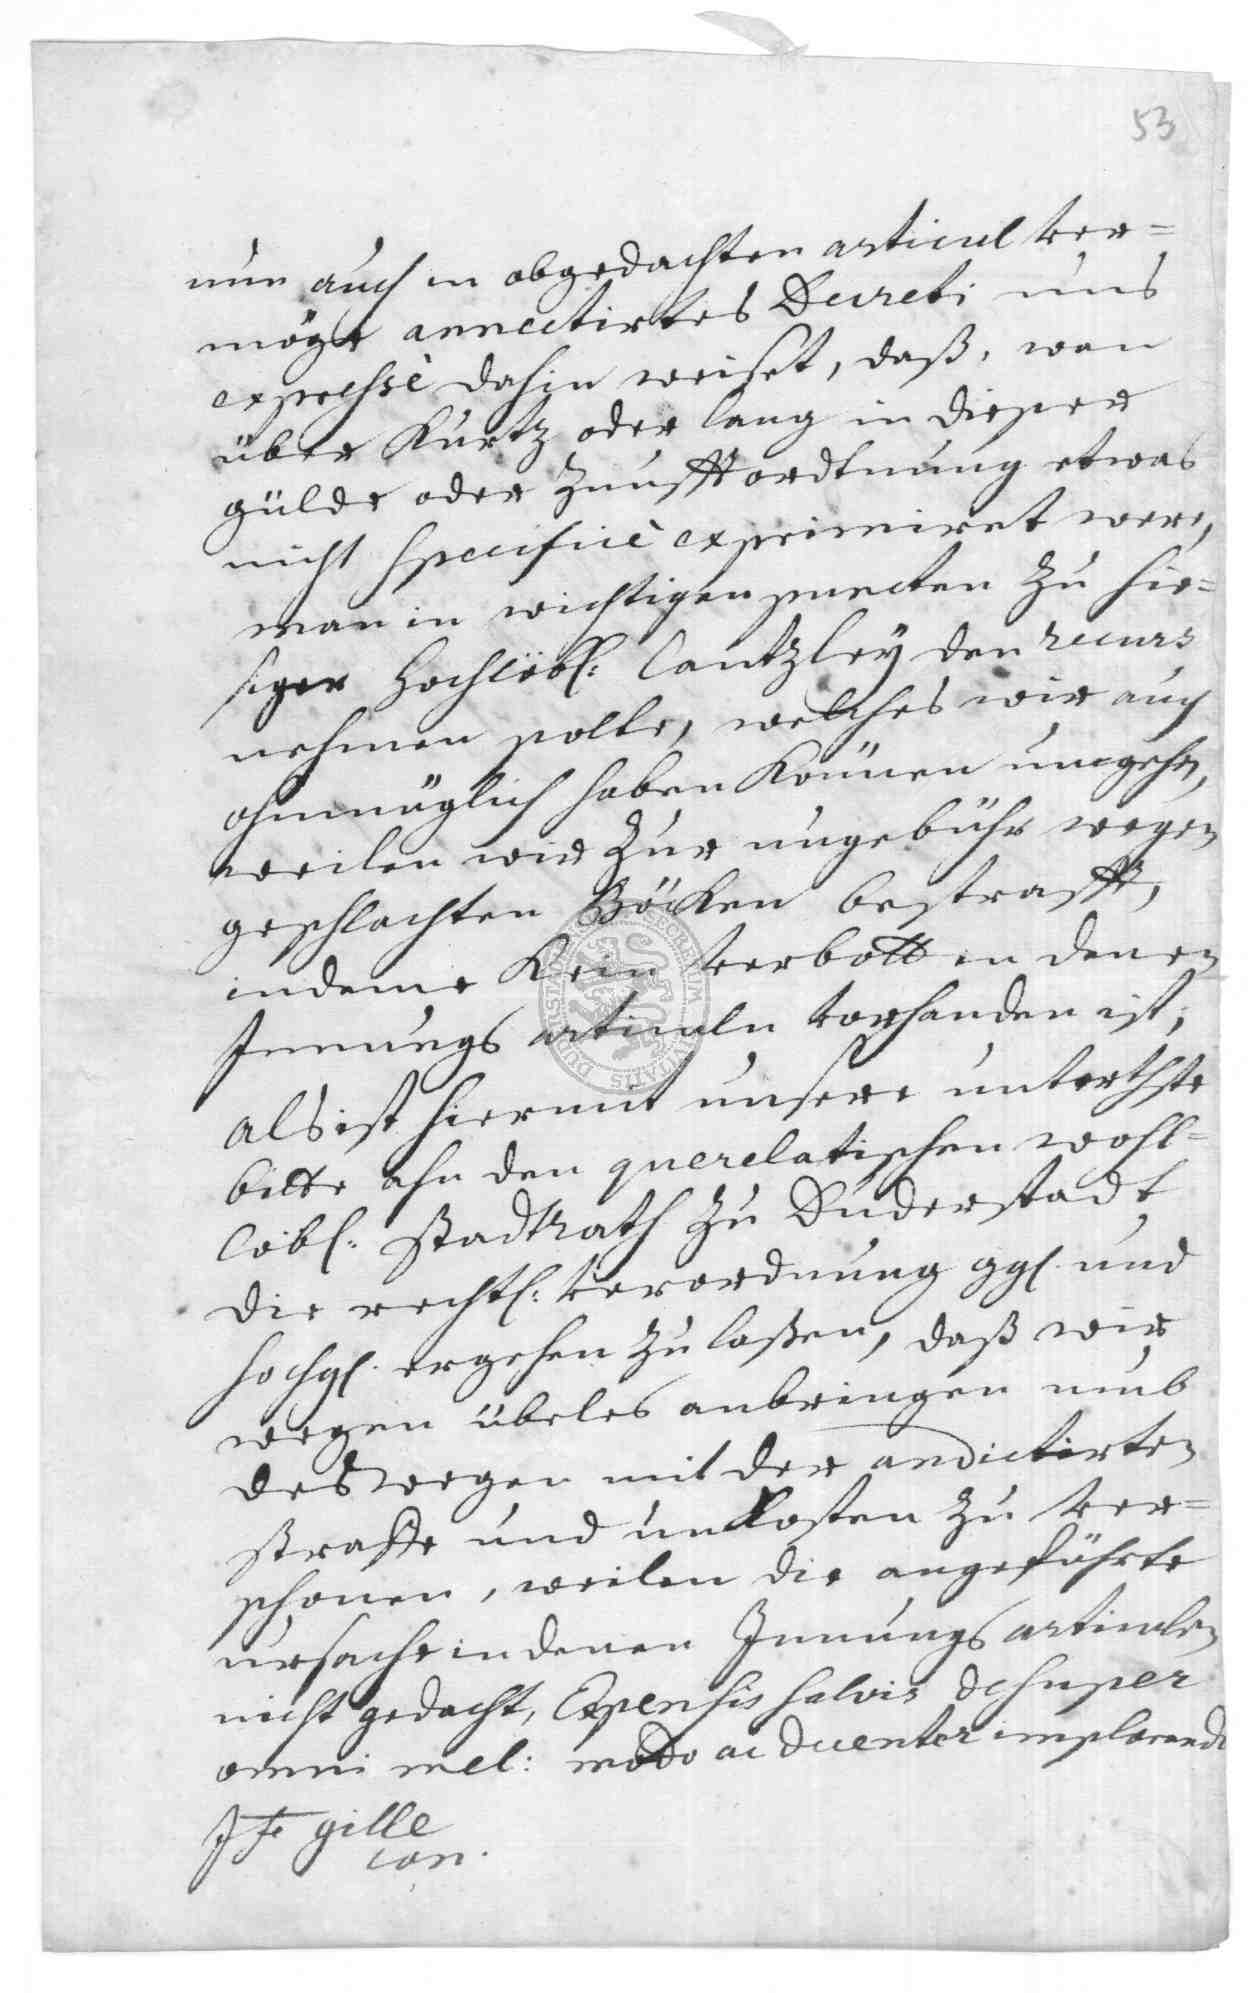 53
nun auch in obgedachten articul ver=
möge annectirtes Decreti uns
expresse dahin weiset, daß, wan
über Kurtz oder lang in dieser
gülde oder Zunfftordtnung etwas
nicht specificè exprimiret were,
man in wichtigen puncten zu hie=
siger Hochlöbl: Cantzley den recurs
nehmen solle, welches wir auch
ohnmüglich haben können umgehen,
weilen wir zur ungebühr wegen
geschlachten Böcken bestrafft,
indeme kein verbott in denen
Innungs articuln vorhanden ist,
als ist hiermit unsere unterthste
bitte ahn den querelatischen wohl=
löbl: Stadtrath zu Duderstadt
die rechtl: verordnung ggl. und
hochgl. ergehen zu laßen, daß wir
wegen übeles anbringen umb
deswegen mit der andictirten
straffe und unkosten zu ver=
schonen, weilen die angeführte
ursache in denen Innungs articulen
nicht gedacht, Expensis salvis desuper
omni mel: modo ac ducenter implorando
J F gille
con.
SECRETUM CIVITATIS DUDERSTAT